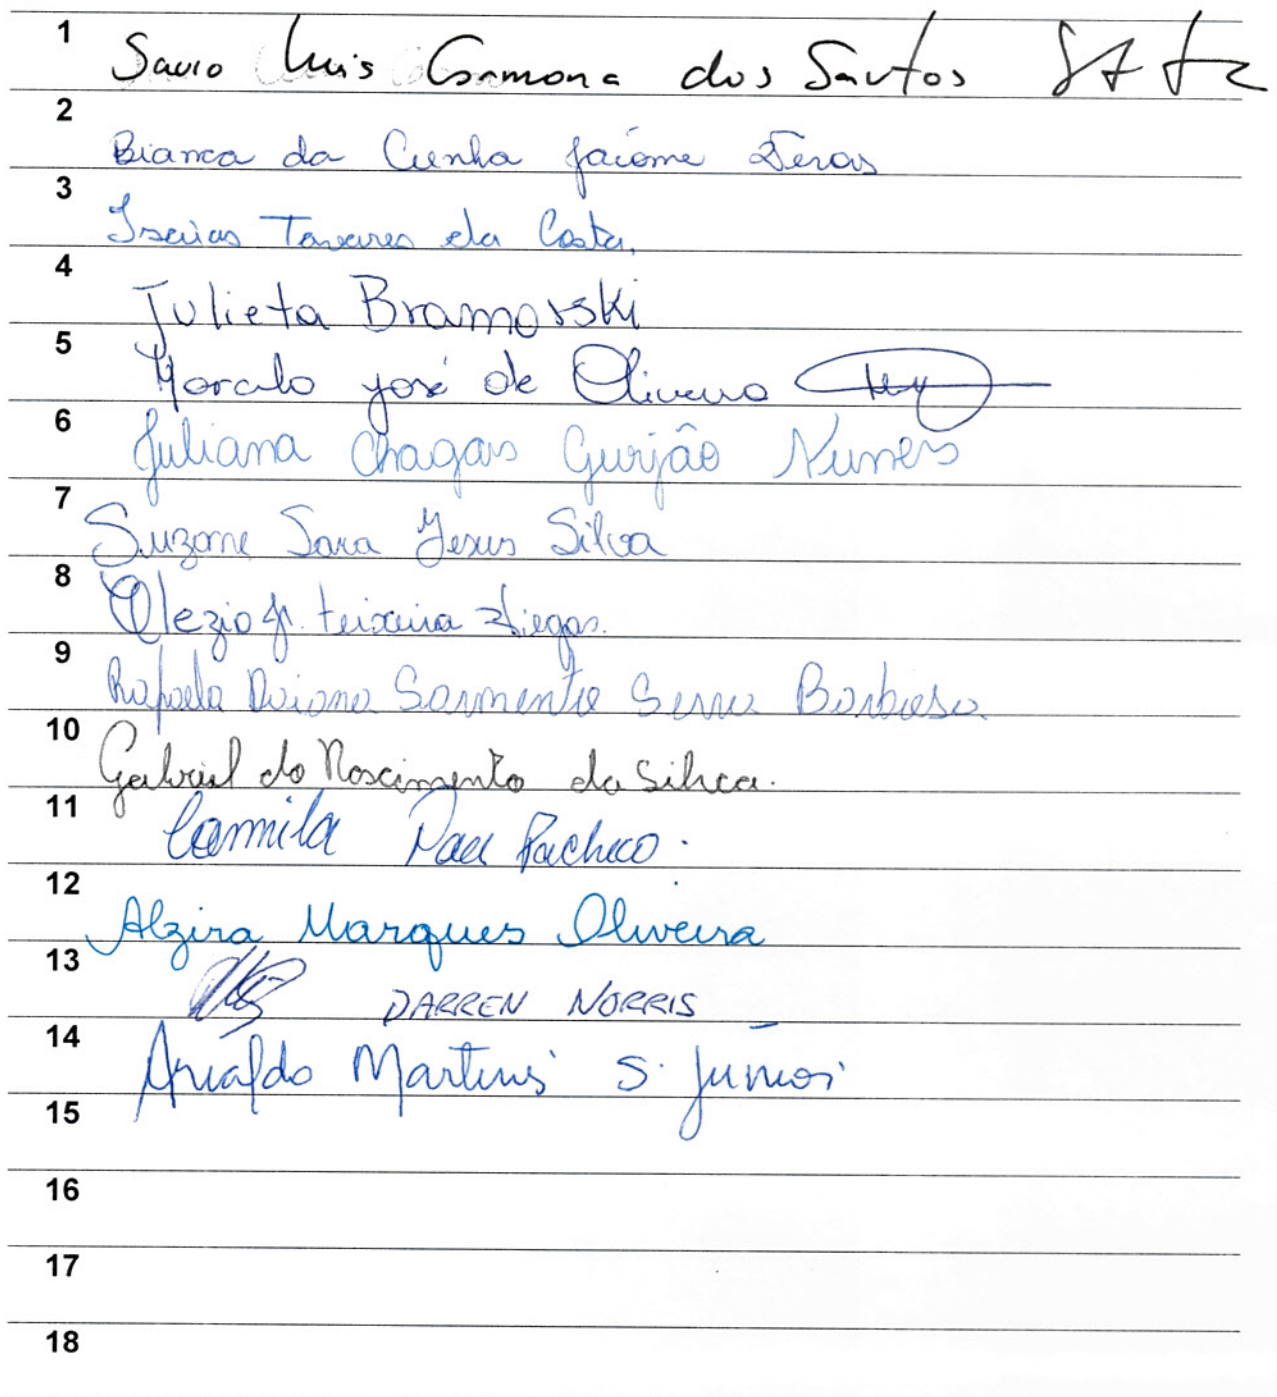 1 Savio Luis Carmona dos Santos
2 Bianca da Cunha Jácome Veras
3 Isaias Tavares da Costa.
4 Julieta Bramorski
5 Marcelo José de Oliveira
6 Juliana Chagas Gurjão Nunes
7 Suzane Sara Jesus Silva
8 Olezio Jr. teixeira Viegas.
9 Rafaela Daiana Sarmento Serra Barbosa
10 Gabriel do Nascimento da Silva.
11 Camila Pacheco.
12 Alzira Marques Oliveira
13 DARREN NORRIS
14 Arialdo Martins S. Junior
15
16
17
18